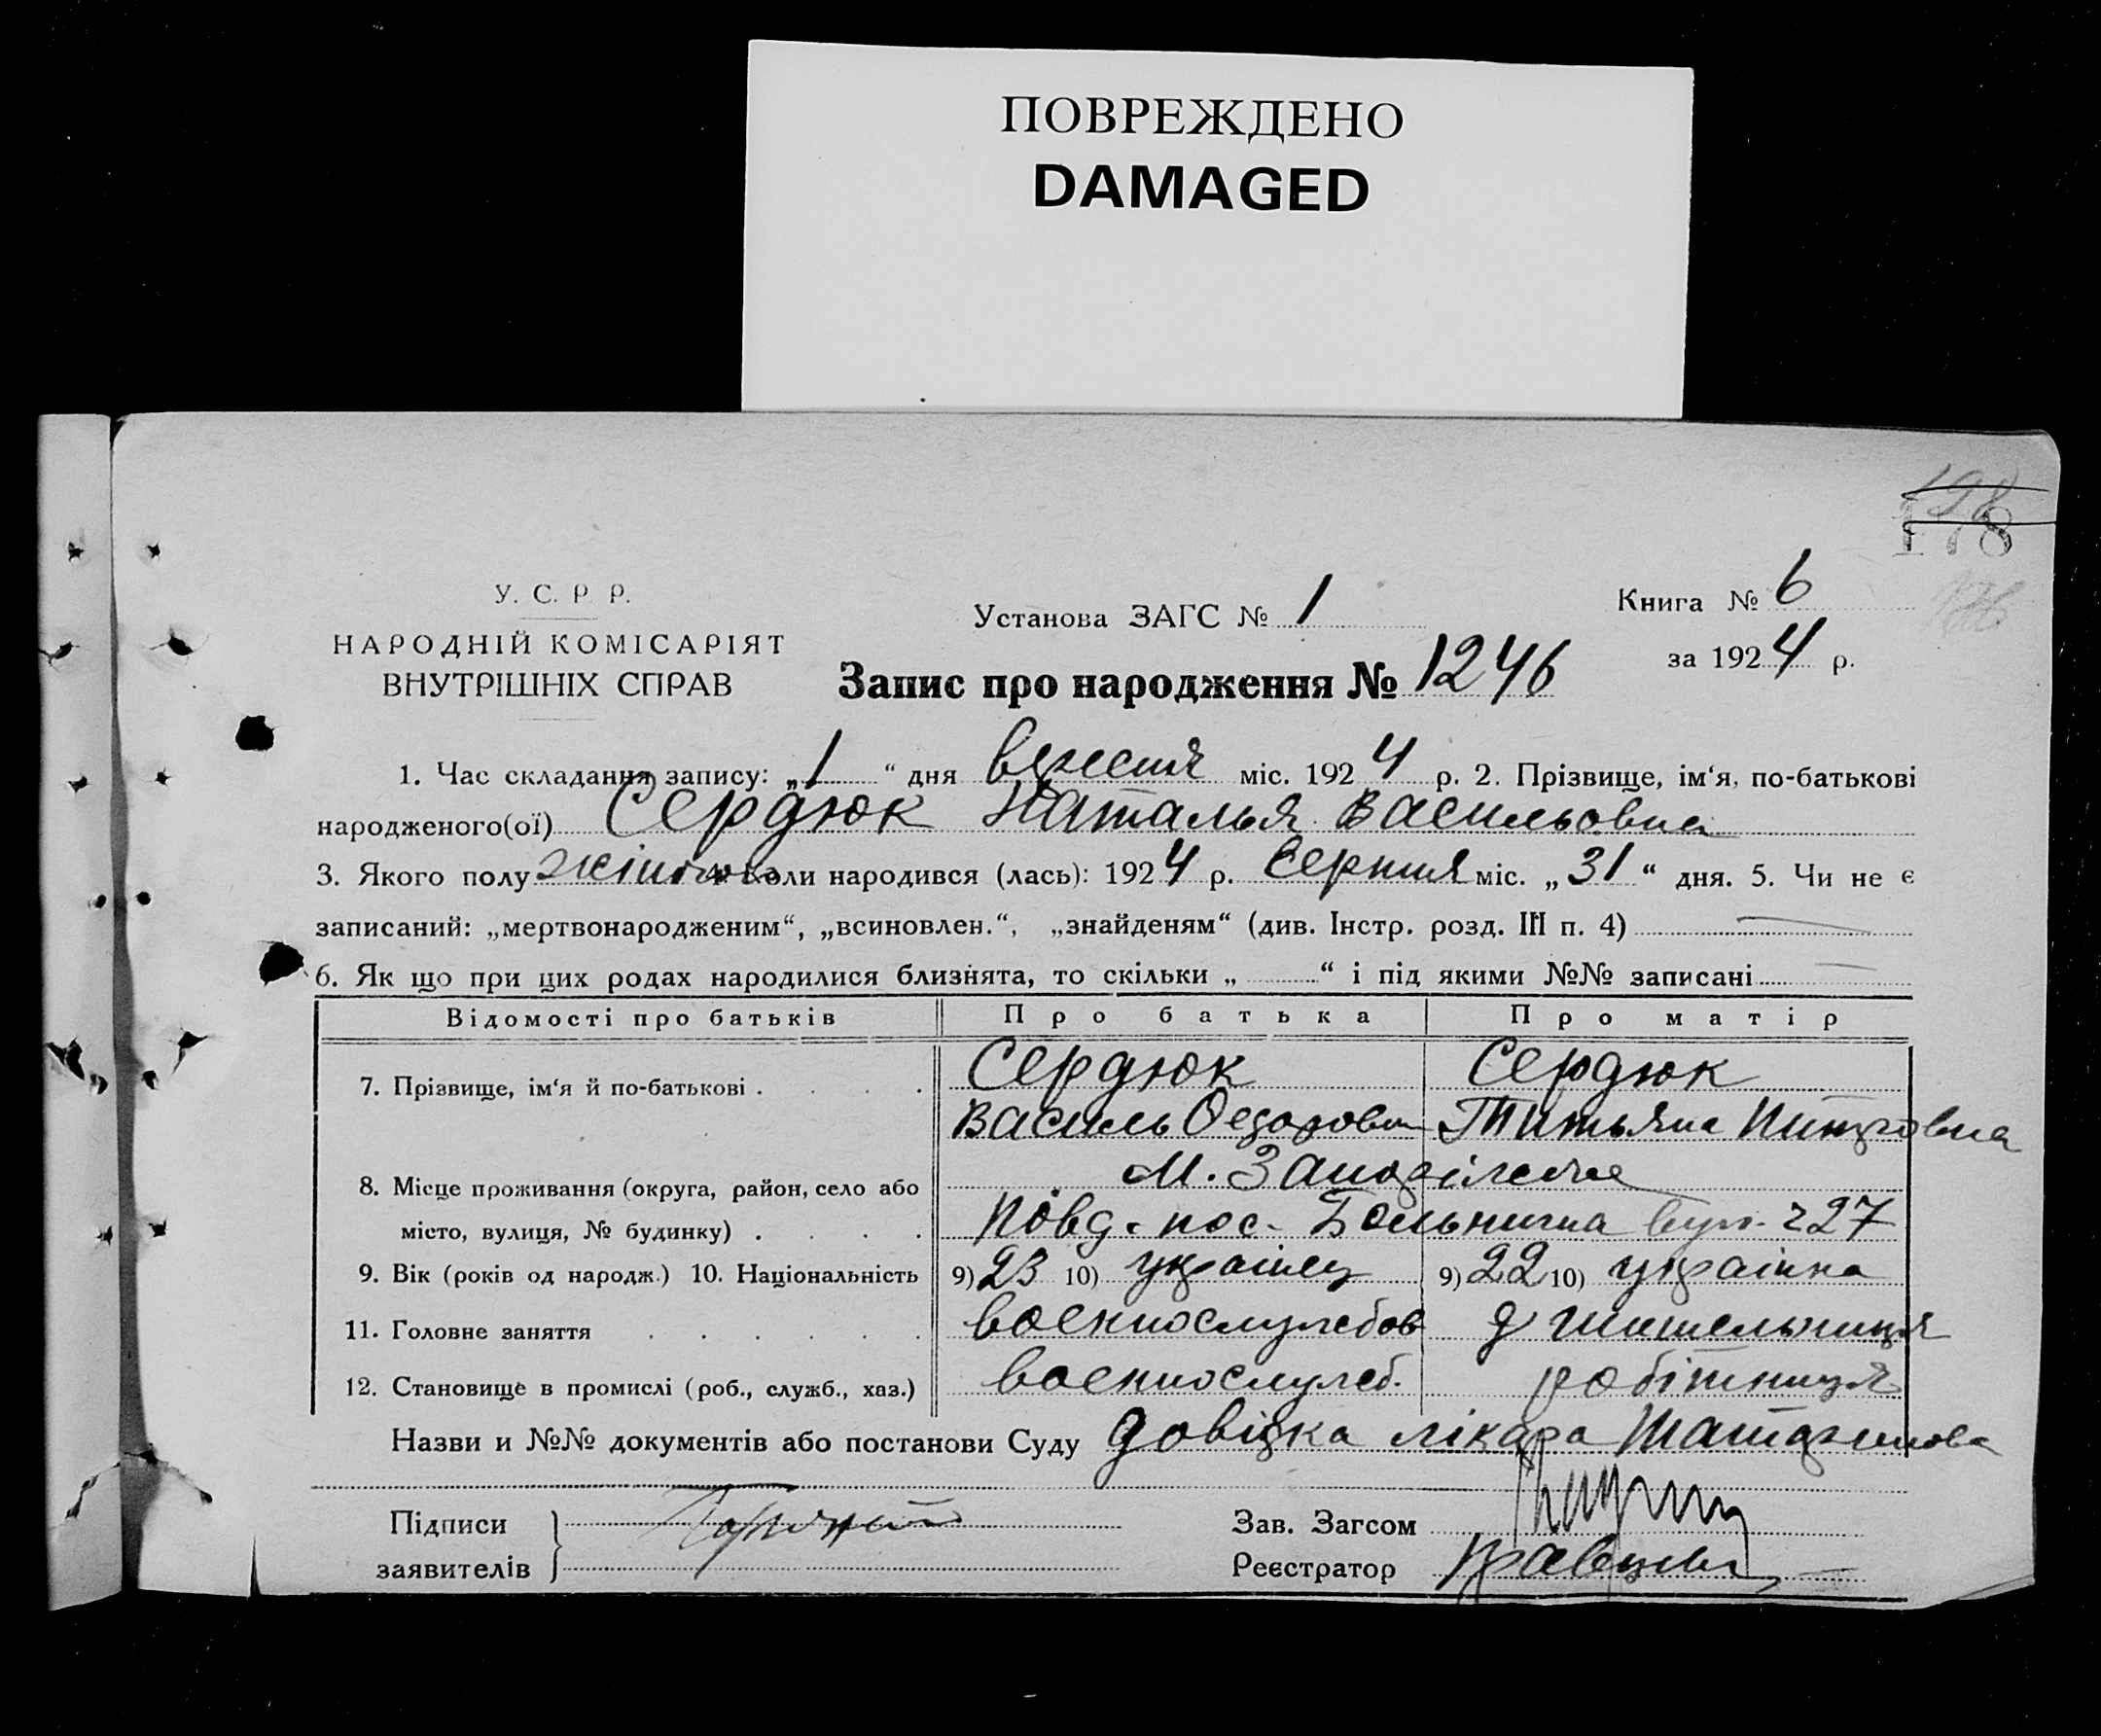 ПОВРЕЖДЕНО
DAMAGED
178
У. С. Р. Р.
НАРОДНІЙ КОМІСАРІЯТ
ВНУТРІШНІХ СПРАВ
Установа ЗАГС № 1
Книга № 6
за 1924 р.
Запис про народження № 1246
1. Час складання запису: „1“ дня вересня міс. 1924 р. 2. Прізвище, ім‘я, по-батькові
народженого(ої) Сердюк Наталья Васильовна
3. Якого полу жіночого 4. Коли народився (лась): 1924 р. Серпня міс. „31“ дня. 5. Чи не є
записаний: „мертвонародженим“, „всиновлен.“, „знайденям“ (див. Інстр. розд. III п. 4)
6. Як що при цих родах народилися близнята, то скільки „ “ і під якими №№ записані
Відомості про батьків Про батька Про матір
7. Прізвище, ім‘я й по-батькові Сердюк Сердюк
Василь Федорович Титьяна
8. Місце проживання (округа, район, село або М. Запоріжжє
місто, вулиця, № будинку) Повд. пос. Больнична вул. 27
9. Вік (років од народж.) 10. Національність 9) 23 10) українец 9) 22 10) українка
11. Головне заняття военнослужбов учительниця
12. Становище в промислі (роб., служб., хаз.) военнослужб. робітниця
Назви и №№ документів або постанови Суду довідка лікара
Підписи
заявителів
Зав. Загсом
Реєстратор